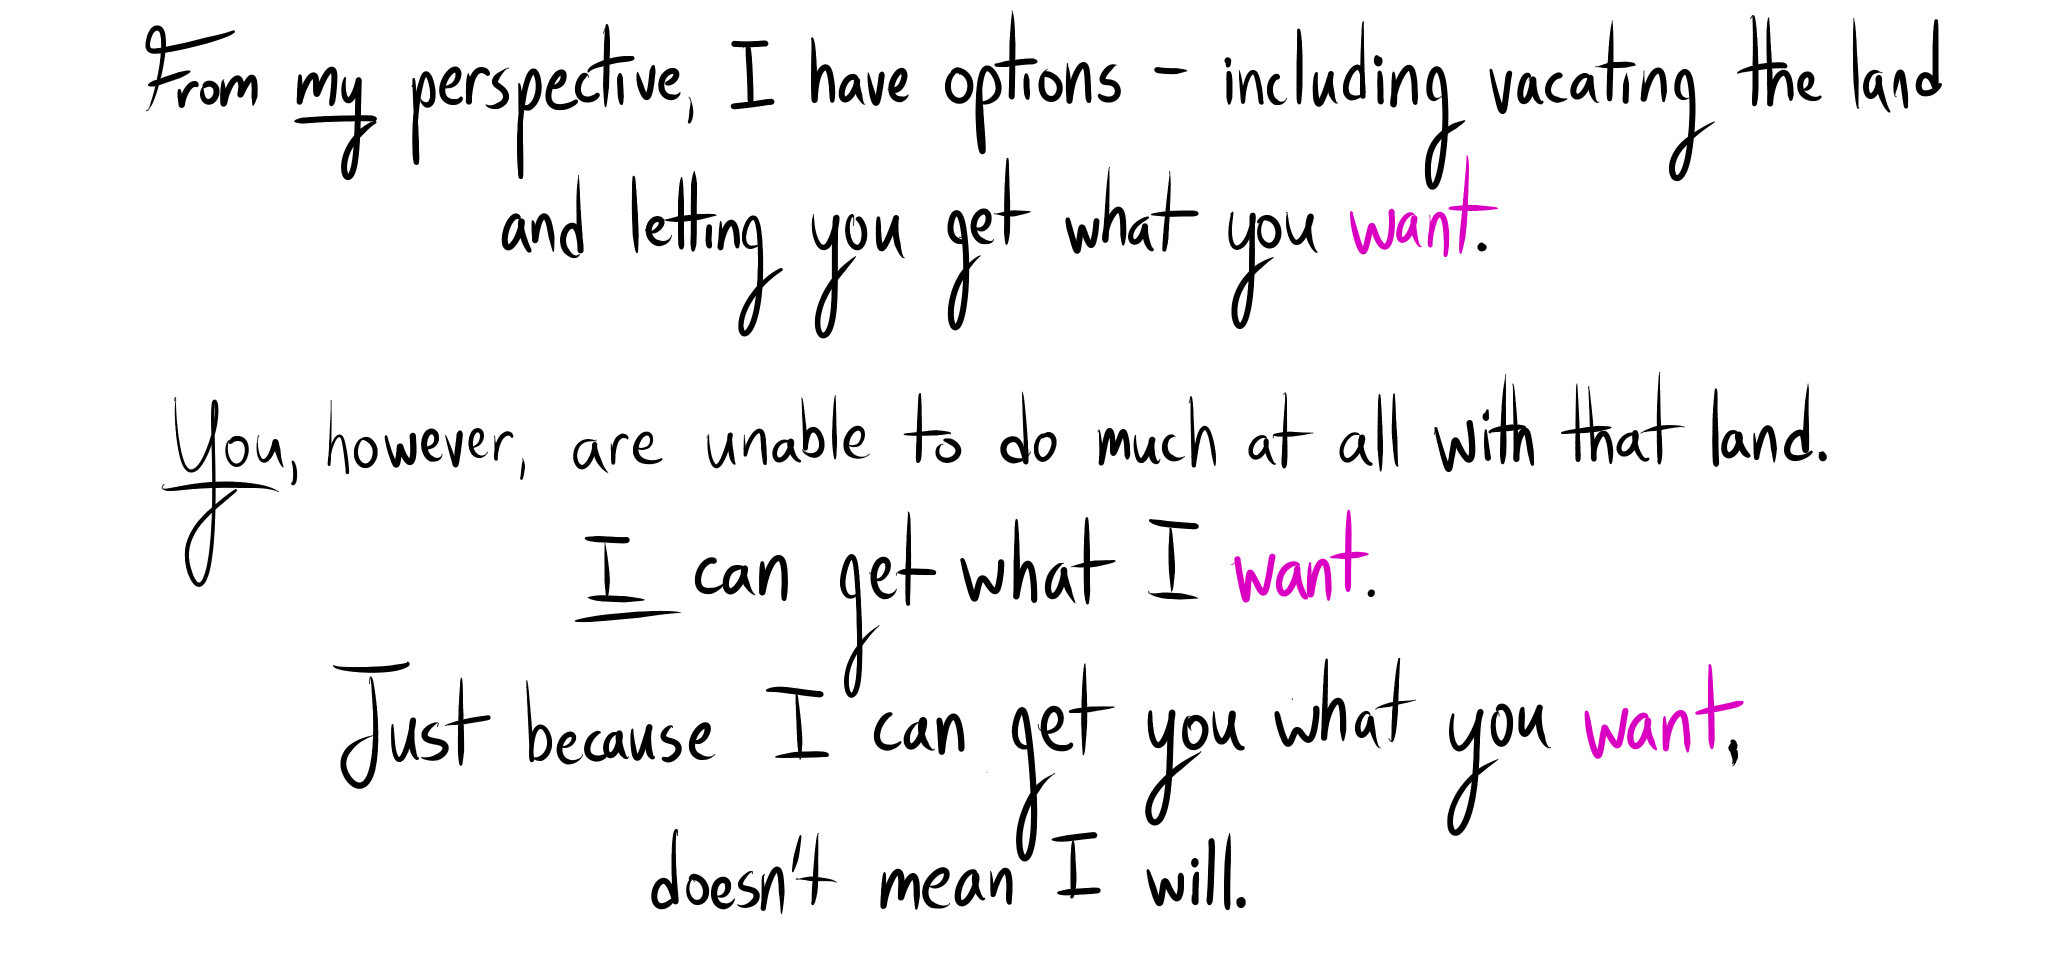 From my perspective, I have options - including vacating the land
and letting you get what you want.
You, however, are unable to do much at all with that land.
I can get what I want.
Just because I can get you what you want,
doesn't mean I will.